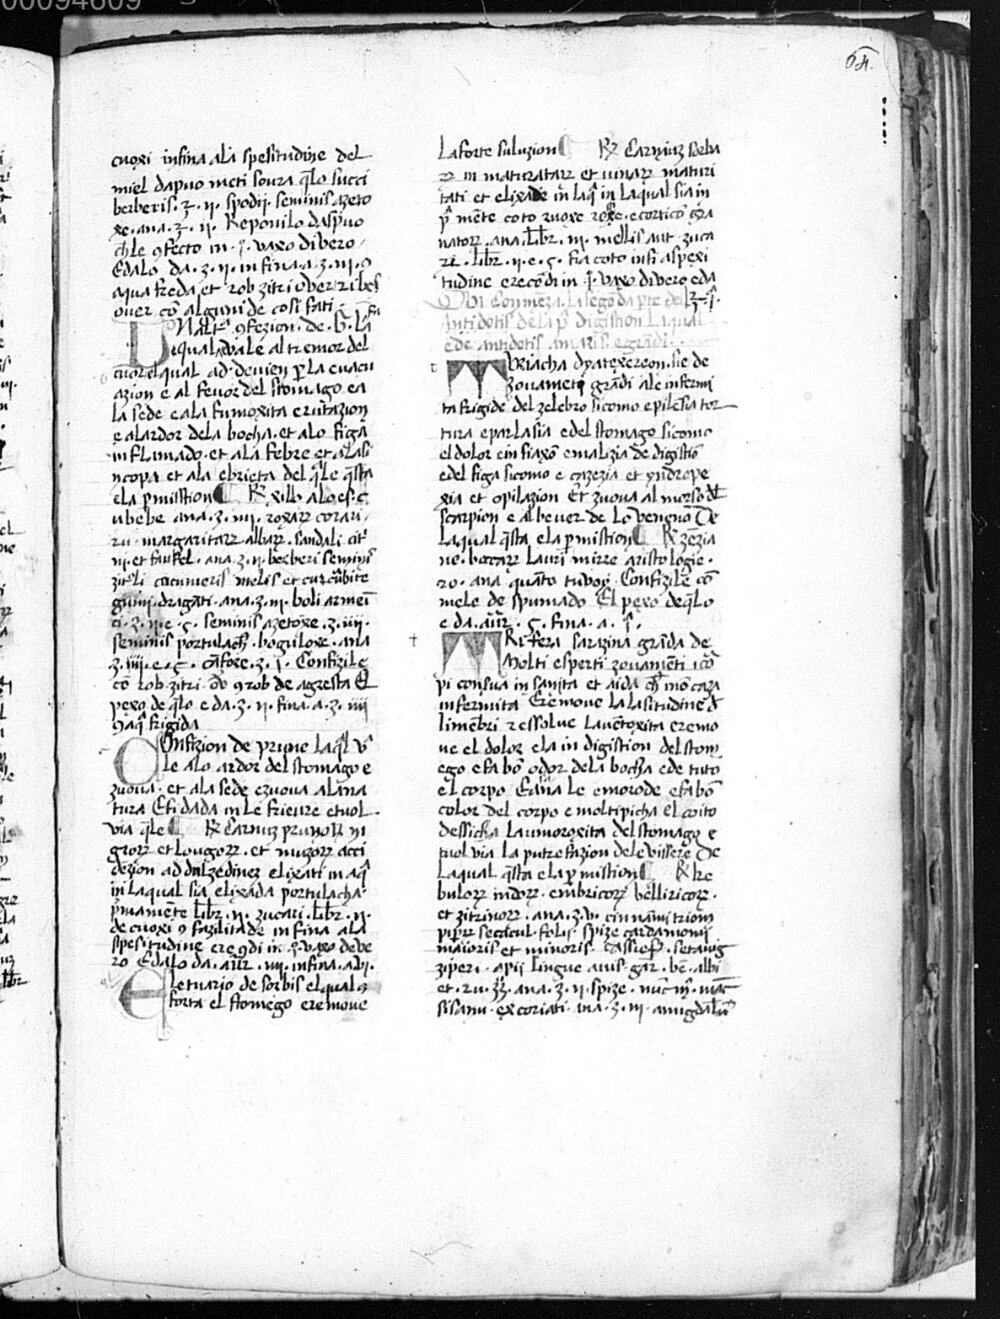 00094609
64.
cuori infina ala spesitudine del
miel dapuo meti soura q̄lo succi
berberis. ʒ. ii. spodii. seminis azeto
xe. ana. ʒ. ii. Reponilo daspuo
ch̄le ꝯfecto in. i. vaxo di vero.
Edalo da. ʒ. ii. in fina. a. ʒ. iii. ꝯ
aqua freda et rob zitri
ouer cō alguni de cosi fati
ꝯfezion. de.
equal vale al tremor del
cuor elqual ad deuien p̄ la euacu
azion e al feuor del stomago ea
la sede e ala fumoxita
e alardor dela bocha. et alo figa
inflamado. et ala febre et ala si
ncopa et ala ebrieta del q̄le q̄sta
ela pmistion ℞ xillo aloes. c
ubebe ana. ʒ. iiii. roxarꝝ corari.
ru. margaritarꝝ albarꝝ. sandali cit
ni. et faufel. ana. ʒ. ii. berberi seminis
zitrli cucumeris melis et curcubite
gumi. dragāti. ana. ʒ. iii. boli armeni
ci. ʒ. ii. e. ς. seminis azetoxe. ʒ. iiii.
seminis portulach. boguloxe. ana
ʒ. iiii. e. ς. cāfore. ʒ. i. Confizile
cō rob. zitri. ꝯ rob de agresta El
pexo de q̄lo e da. ʒ. ii. fina. a. ʒ. iiii
ꝯ aq̄ frigida
COnfizion de prune laq̄l v
le alo ardor del stomago e
zuoua. et ala sede ezuoua alana
tura Efi dada in le frieure etuol.
via q̄le ℞ Carniuz prunorꝝ ni
grorꝝ et longorꝝ. et
dezion ad dulzedinez elixati in aq̄
in laqual sia elixada portulacha.
p̄mamēte libr. ii. zucari. libr. ii.
de cuori ꝯ fazilitade infina ala
spesitudine erecōdi in. i. vaxo deve
ro Edalo da. aur̄. iiii. infina.
Eletuario de sorbis elqual ꝯ
forta el stomego eremoue
la forte soluzion ℞ Carniuz sorba
rꝝ in maturatarꝝ et
tati et elixade in laq̄ in laqual sia in
p̄mēte coto zuoxe roxe. e cortico gra
natorꝝ. ana. libr. iii. mellis aut. zuca
ri. libr. ii. e. ς. fia coto infi aspexi
tudine erecōdi in. i. vaxo di vero eda
Qui Comēza la segōda pte del
Antidotis de la p̄ digestion Laqual
e de antidotis amaris e grandi
TRiacha dyatexereon. sie de
zouameti grādi ale infermi
ta frigide del zelebro sicomo epilesia tor
tura eparlasia edel stomago sicomo
el dolor ein fiaxō emalizia de digestiō
edel figa sicomo e cazexia et yndrope
xia et opilazion Et zuoua al morso del
scarpion e al beuer de lo venegnō De
laqual q̄sta ela pmistion ℞ zēzia
ne. boccarꝝ lauri mirre aristologie.
ro. ana quāto tuvoy. Confizile cō
mele de spumado El pexo deq̄lo
e da. aur̄. ς. fina. a. i.
TRifera sarazina grāda de
molti esperti zouamēti icō
pi consua in sanita et aida
infermita Eremoue la lasitudine d
limēbri resolue la uētoxita eremo
ue el dolor ela in digistion del stom
ego efa bō odor dela bocha ede tuto
el corpo Esāna le emorode e fa bō
color del corpo e moltipicha el coito
dessicha laumoroxita del stomago e
tuol via la putrefazion dele vissere De
laqual q̄sta ela pmistion ℞ ke
bulorꝝ indorꝝ. embricorꝝ belliricorꝝ.
et zitrinorꝝ. ana. ʒ. v. cinnami triom
pipr̄ secacul. folii. spize cardamomi
maioris et minoris. setarag
ziperi. apii lingue auis
et. ru. ana. ʒ. ii. spize. nuc m. mac
sisami. excoriati. ana. ʒ. iii. amigdalarū